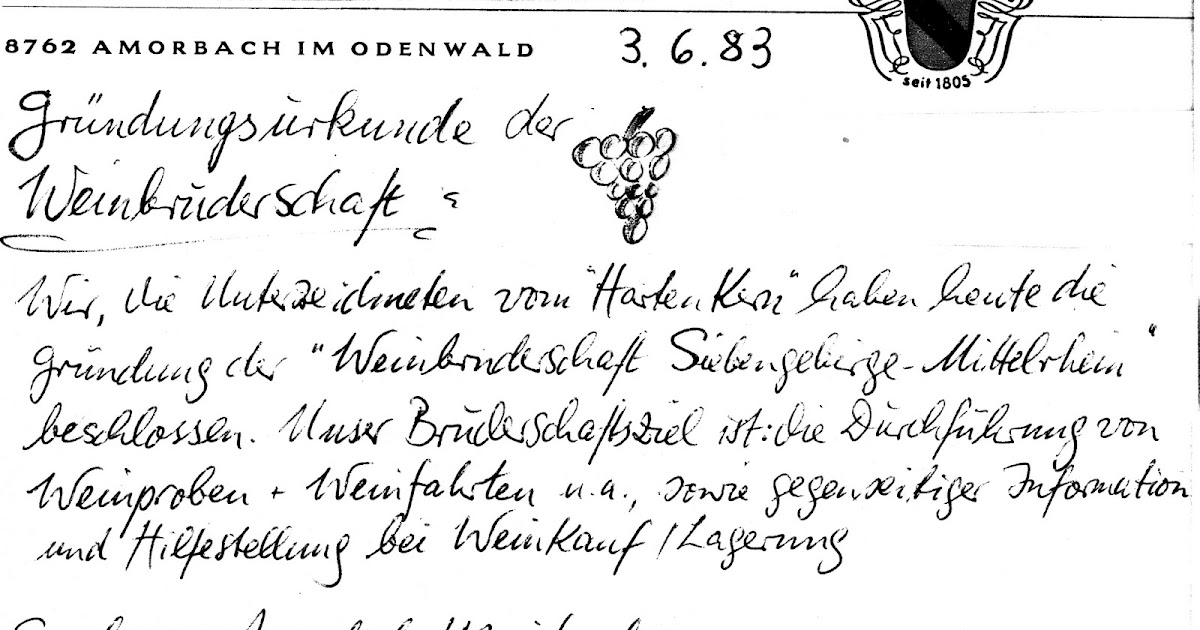 8762 AMORBACH IM ODENWALD
3. 6. 83
seit 1805
Gründungsurkunde der
Weinbruderschaft :
Wir, die Unterzeichneten vom "Harten Kern" haben heute die
Gründung der "Weinbruderschaft Siebengebirge-Mittelrhein"
beschlossen. Unser Bruderschaftsziel ist: die Durchführung von
Weinproben + Weinfahrten u.a., sowie gegenseitiger Information
und Hilfestellung bei Weinkauf / Lagerung